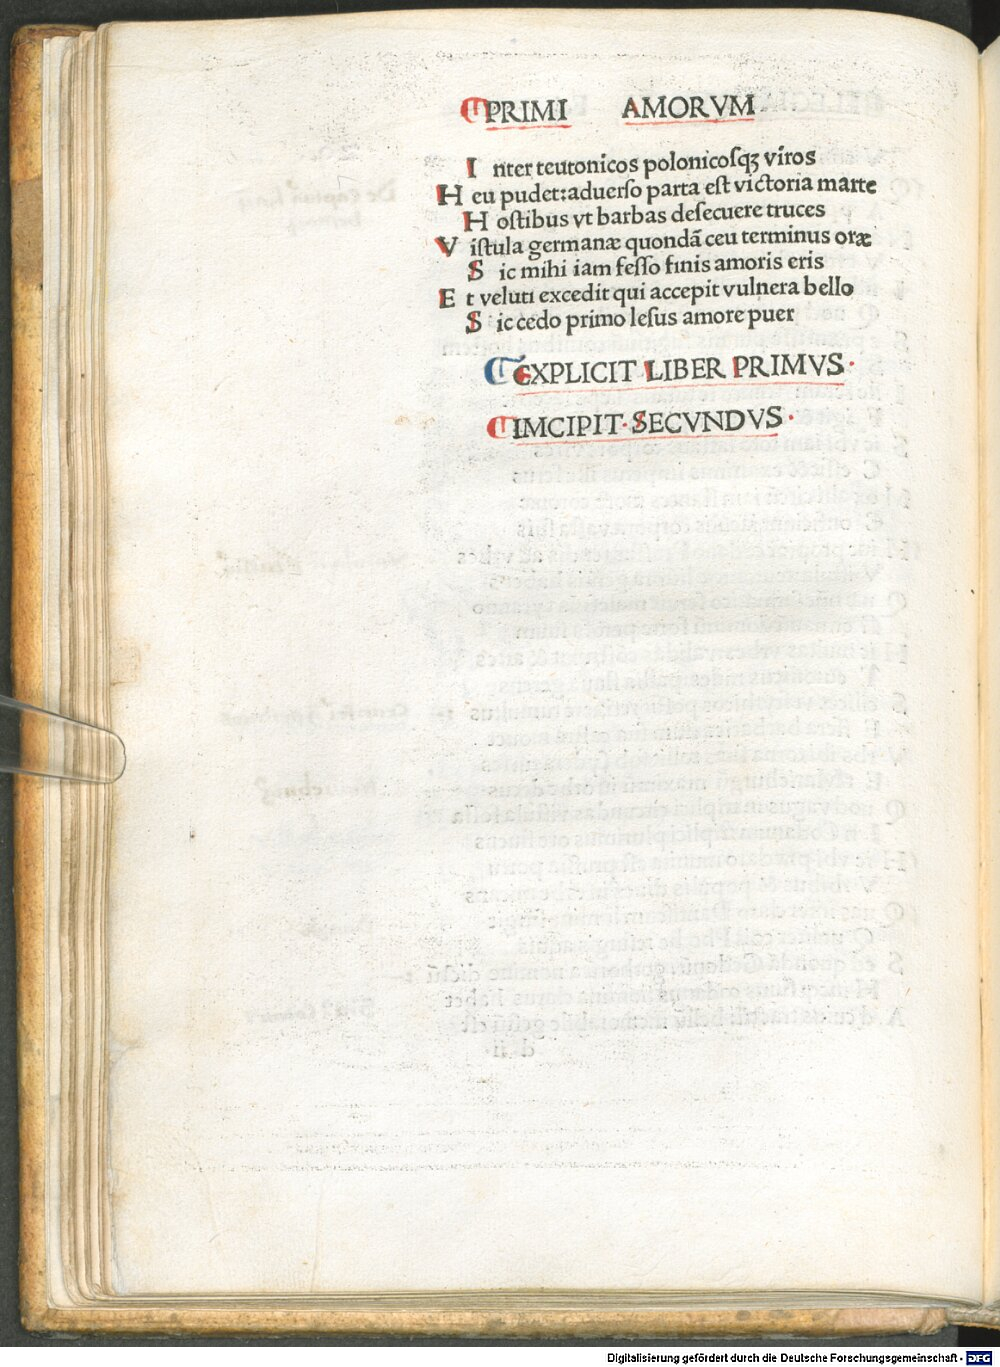 PRIMI AMORVM
Inter teutonicos polonicosqꝫ viros
Heu pudet:aduerso parta est victoria marte
Hostibus vt barbas desecuere truces
Vistula germanæ quondã ceu terminus oræ
Sic mihi iam fesso finis amoris eris
Et veluti excedit qui accepit vulnera bello
Sic cedo primo lesus amore puer
EXPLICIT LIBER PRIMVS·
IMCIPIT·SECVNDVS·
Digitalisierung gefördert durch die Deutsche Forschungsgemeinschaft - DFG